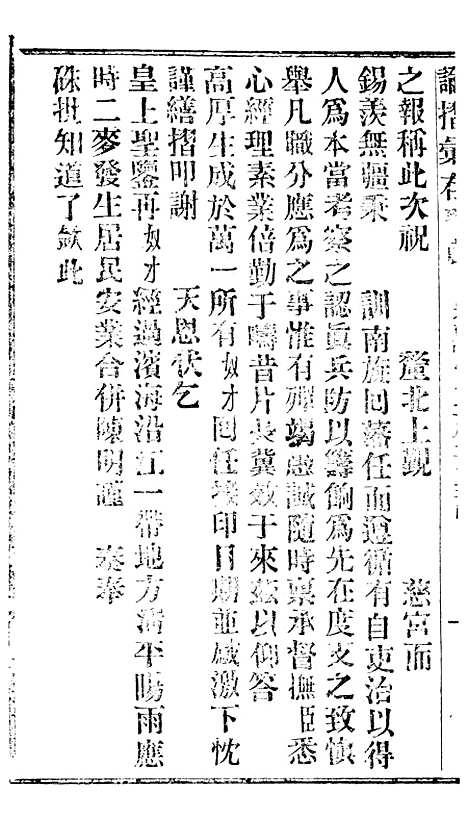 諭摺彙存
之報稱此次祝　　釐北上覲　　慈宮而
錫羨無疆秉　　訓南旋回落任而遵循有自吏治以得
人爲本當考察之認眞兵防以籌餉爲先在度支之致愼
舉凡職分應爲之事惟有殫竭愚誠隨時稟承督撫臣悉
心經理素業倍勤于疇昔片長冀效于來茲以仰答
高厚生成於萬一所有奴才回任接印日期並感激下忱
謹繕摺叩謝　　天恩伏乞
皇上聖鑒再奴才經過濱海沿江一帶地方淸平暘雨應
時二麥發生居民安業合併陳明謹　　奏奉
硃批知道了欽此